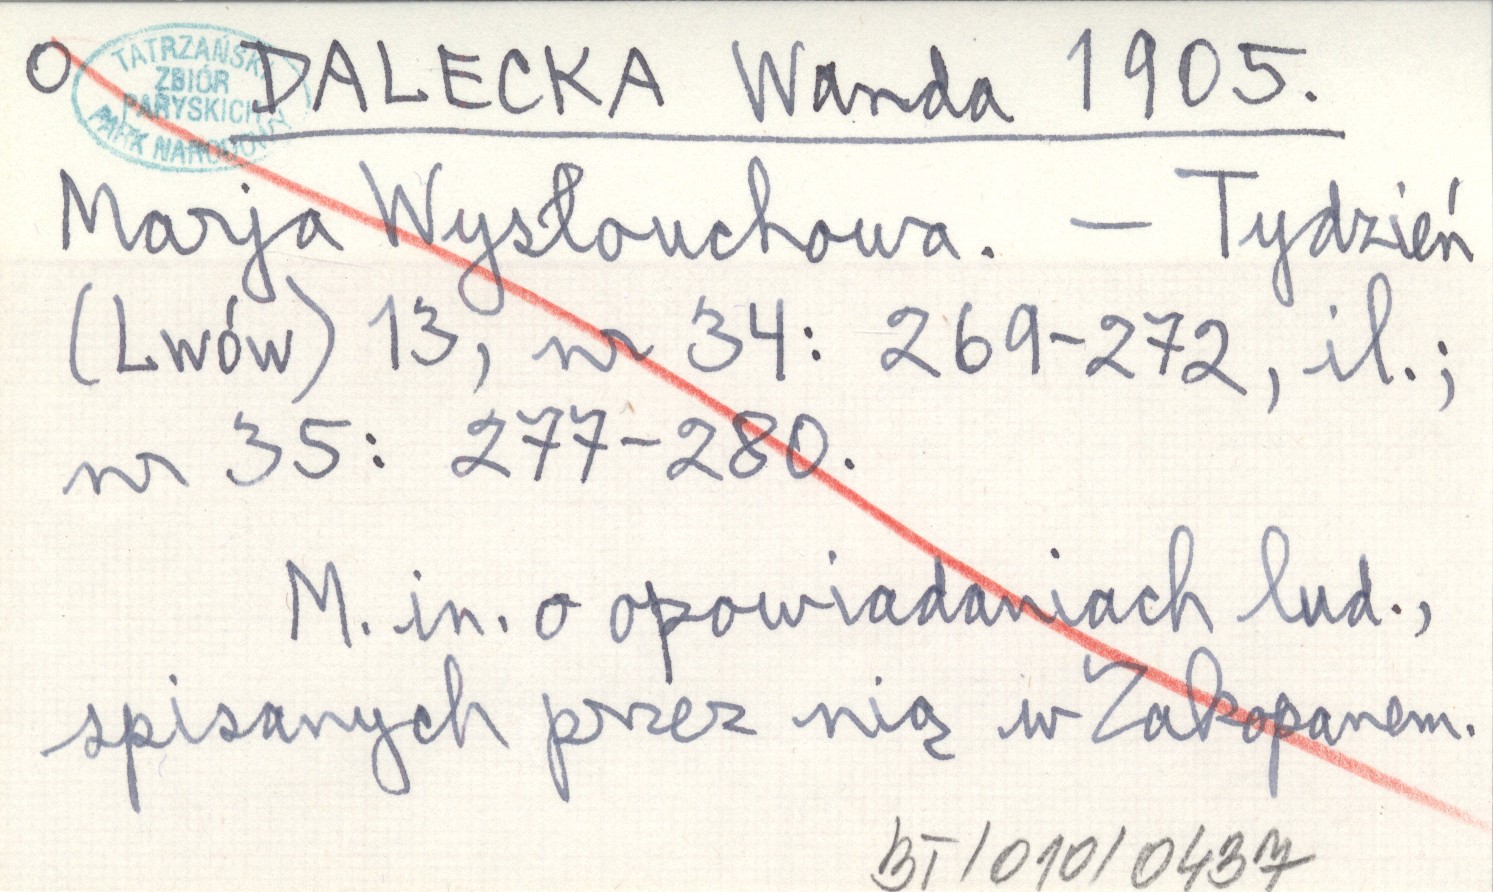 O DALECKA Wanda 1905.
TATRZAŃSKI
ZBIÓR
PARYSKICH
PARK NARODOWY
Marja Wysłouchowa. — Tydzień
(Lwów) 13, nr 34: 269-272, il.;
nr 35: 277-280.
M. in. o opowiadaniach lud.,
spisanych przez nią w Zakopanem.
BT/010/0437